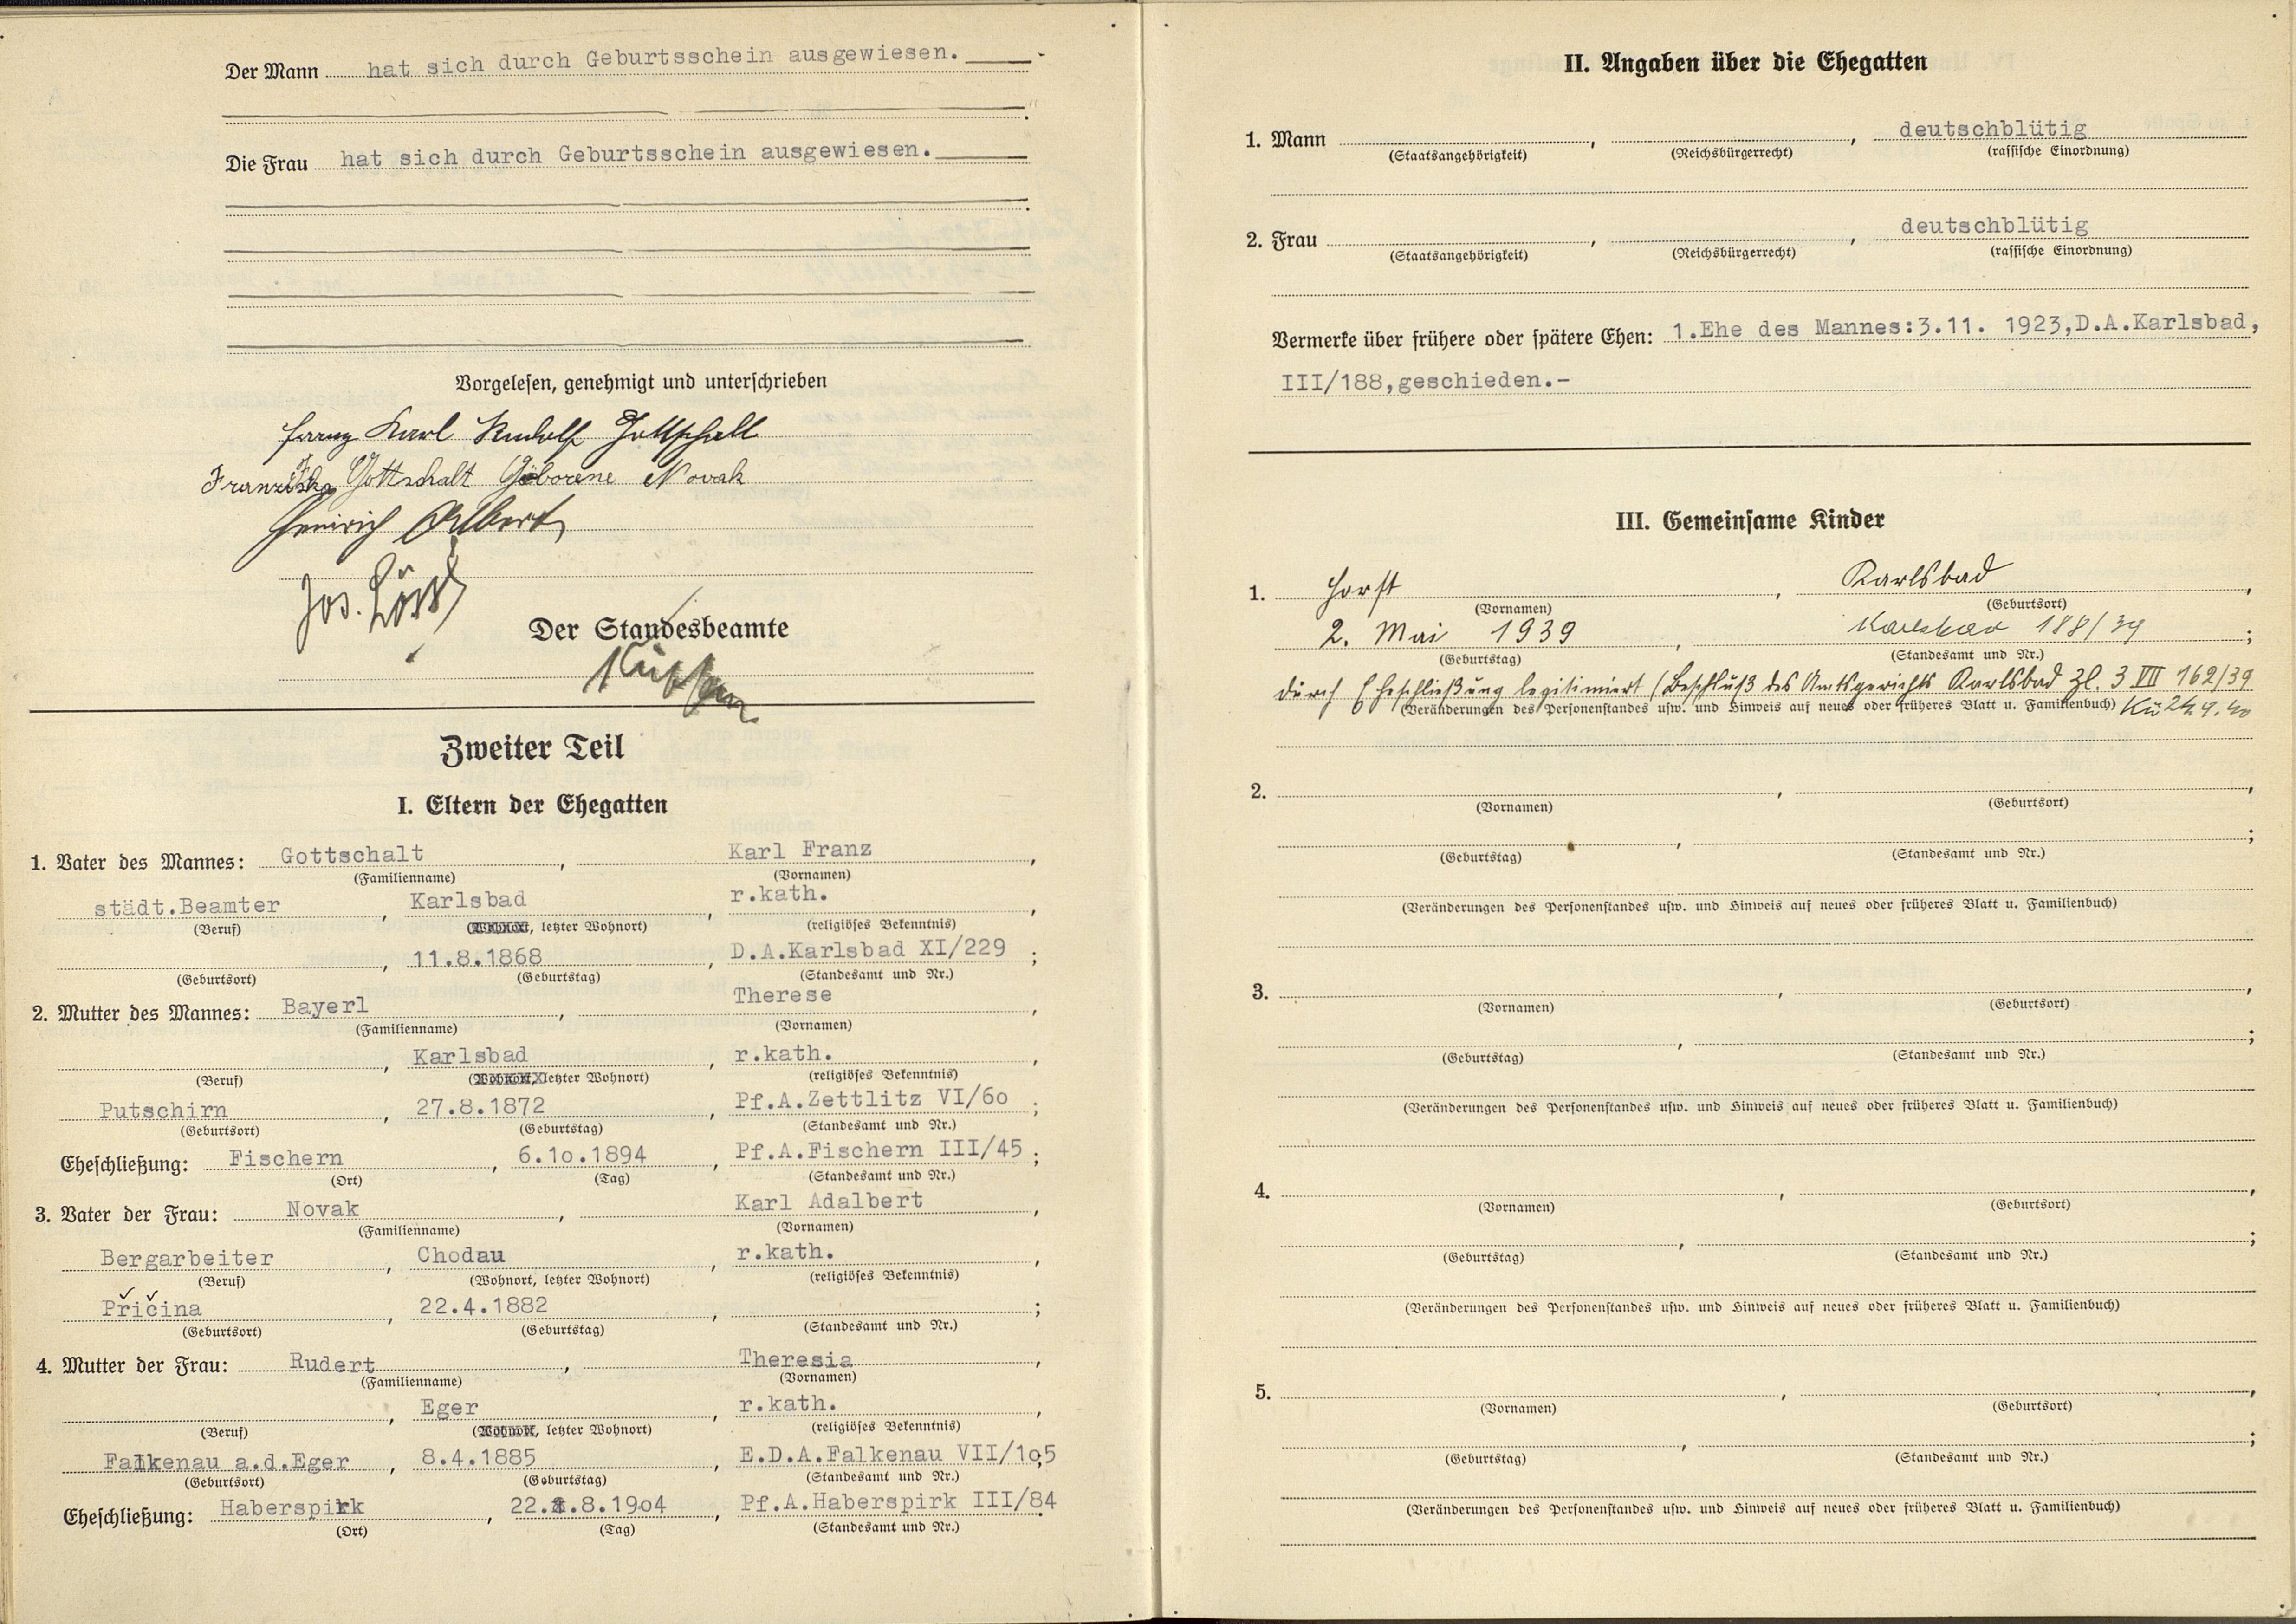 Der Mann hat sich durch Geburtsschein ausgewiesen.
Die Frau hat sich durch Geburtsschein ausgewiesen.
Vorgelesen, genehmigt und unterschrieben
Franz Karl Rudolf Gottschalt
Franziska Gottschalt Geborene Novak
Heinrich Albert
Jos.
Der Standesbeamte
Zweiter Teil
I. Eltern der Ehegatten
1. Vater des Mannes: Gottschalt, Karl Franz,
(Familienname) (Vornamen)
städt.Beamter, Karlsbad, r.kath.,
(Beruf) (Wohnort, letzter Wohnort) (religiöses Bekenntnis)
, 11.8.1868, D.A.Karlsbad XI/229;
(Geburtsort) (Geburtstag) (Standesamt und Nr.)
2. Mutter des Mannes: Bayerl, Therese,
(Familienname) (Vornamen)
, Karlsbad, r.kath.,
(Beruf) (Wohnort, letzter Wohnort) (religiöses Bekenntnis)
Putschirn, 27.8.1872, Pf.A.Zettlitz VI/60;
(Geburtsort) (Geburtstag) (Standesamt und Nr.)
Eheschließung: Fischern, 6.10.1894, Pf.A.Fischern III/45;
(Ort) (Tag) (Standesamt und Nr.)
3. Vater der Frau: Novak, Karl Adalbert,
(Familienname) (Vornamen)
Bergarbeiter, Chodau, r.kath.,
(Beruf) (Wohnort, letzter Wohnort) (religiöses Bekenntnis)
Příčina, 22.4.1882, ;
(Geburtsort) (Geburtstag) (Standesamt und Nr.)
4. Mutter der Frau: Rudert, Theresia,
(Familienname) (Vornamen)
, Eger, r.kath.,
(Beruf) (Wohnort, letzter Wohnort) (religiöses Bekenntnis)
Falkenau a.d.Eger, 8.4.1885, E.D.A.Falkenau VII/105;
(Geburtsort) (Geburtstag) (Standesamt und Nr.)
Eheschließung: Haberspirk, 22.8.1904, Pf.A.Haberspirk III/84.
(Ort) (Tag) (Standesamt und Nr.)
II. Angaben über die Ehegatten
1. Mann , , deutschblütig
(Staatsangehörigkeit) (Reichsbürgerrecht) (rassische Einordnung)
2. Frau , , deutschblütig
(Staatsangehörigkeit) (Reichsbürgerrecht) (rassische Einordnung)
Vermerke über frühere oder spätere Ehen: 1.Ehe des Mannes:3.11. 1923,D.A.Karlsbad,
III/188,geschieden.-
III. Gemeinsame Kinder
1. Horst, Karlsbad,
(Vornamen) (Geburtsort)
2. Mai 1939, Karlsbad 188/39;
(Geburtstag) (Standesamt und Nr.)
durch Eheschließung legitimiert (Beschluß des Amtsgerichts Karlsbad Zl. 3 VII 162/39
(Veränderungen des Personenstandes usw. und Hinweis auf neues oder früheres Blatt u. Familienbuch)
2. , ,
(Vornamen) (Geburtsort)
, ;
(Geburtstag) (Standesamt und Nr.)
(Veränderungen des Personenstandes usw. und Hinweis auf neues oder früheres Blatt u. Familienbuch)
3. , ,
(Vornamen) (Geburtsort)
, ;
(Geburtstag) (Standesamt und Nr.)
(Veränderungen des Personenstandes usw. und Hinweis auf neues oder früheres Blatt u. Familienbuch)
4. , ,
(Vornamen) (Geburtsort)
, ;
(Geburtstag) (Standesamt und Nr.)
(Veränderungen des Personenstandes usw. und Hinweis auf neues oder früheres Blatt u. Familienbuch)
5. , ,
(Vornamen) (Geburtsort)
, ;
(Geburtstag) (Standesamt und Nr.)
(Veränderungen des Personenstandes usw. und Hinweis auf neues oder früheres Blatt u. Familienbuch)